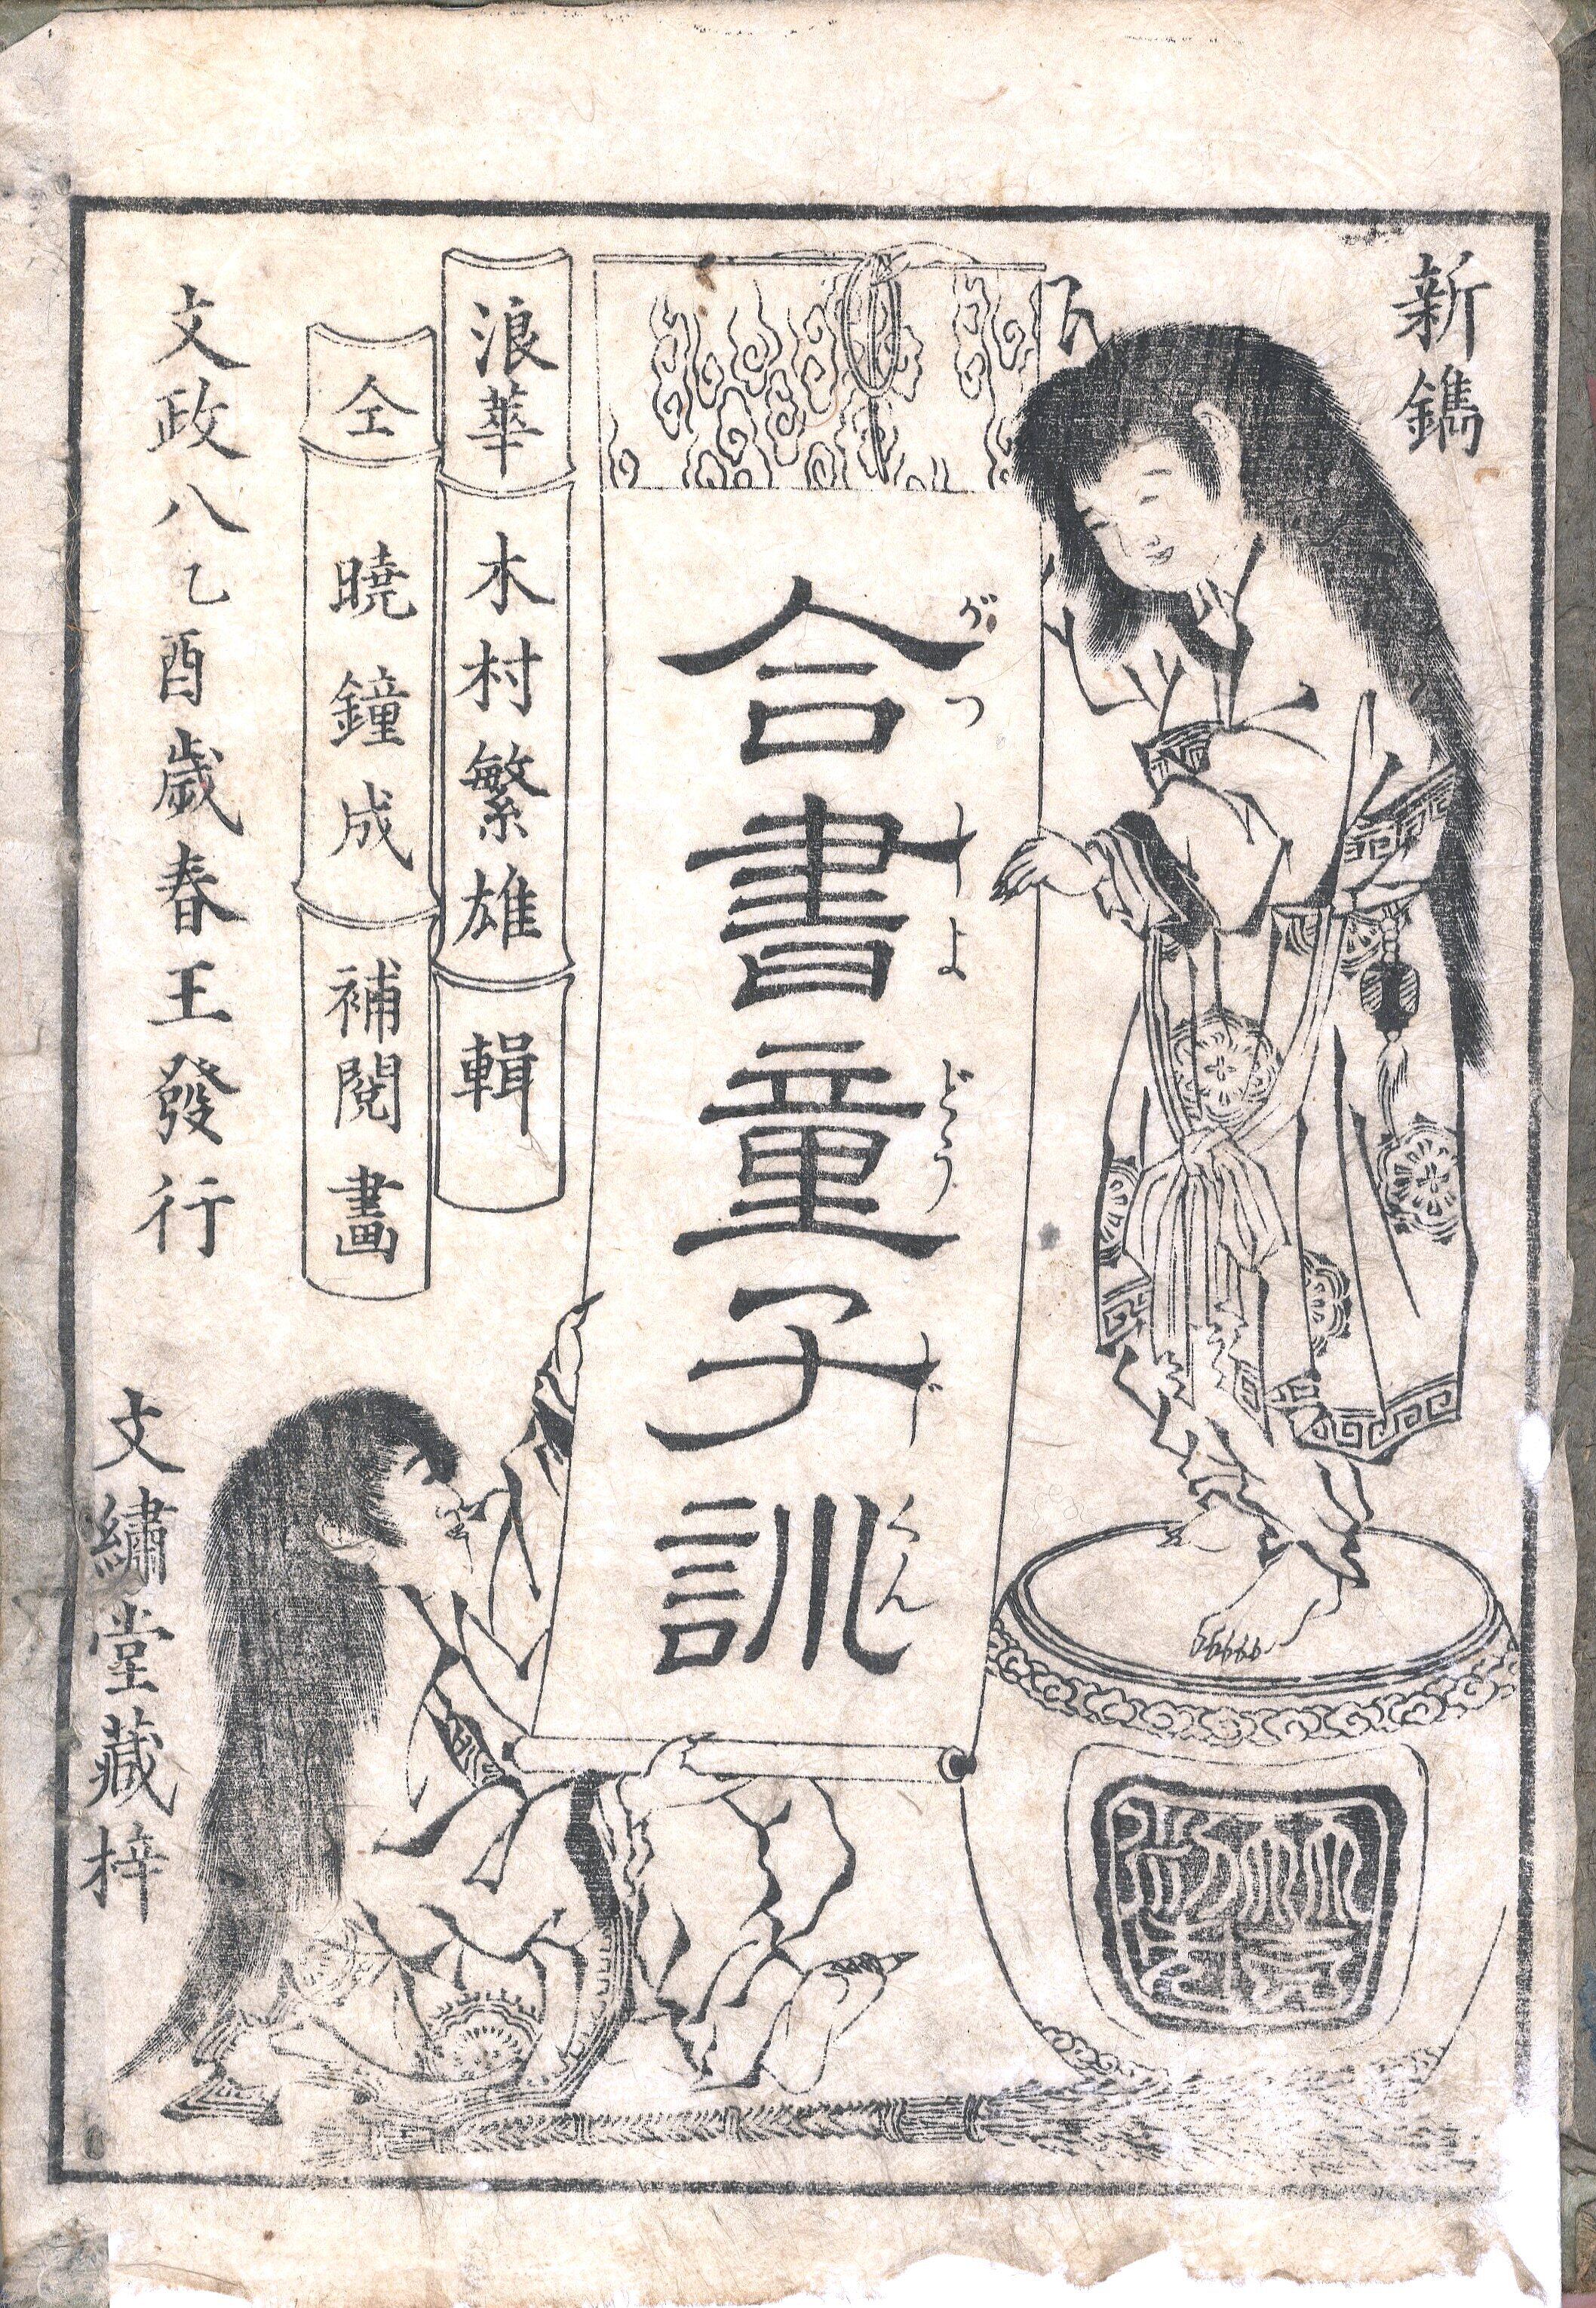 新鐫
合書童子訓
がつしよどうじくん
浪華 木村繁雄 輯
仝 暁鐘成 補閲畫
文政八乙酉歳春王發行
文繡堂藏梓